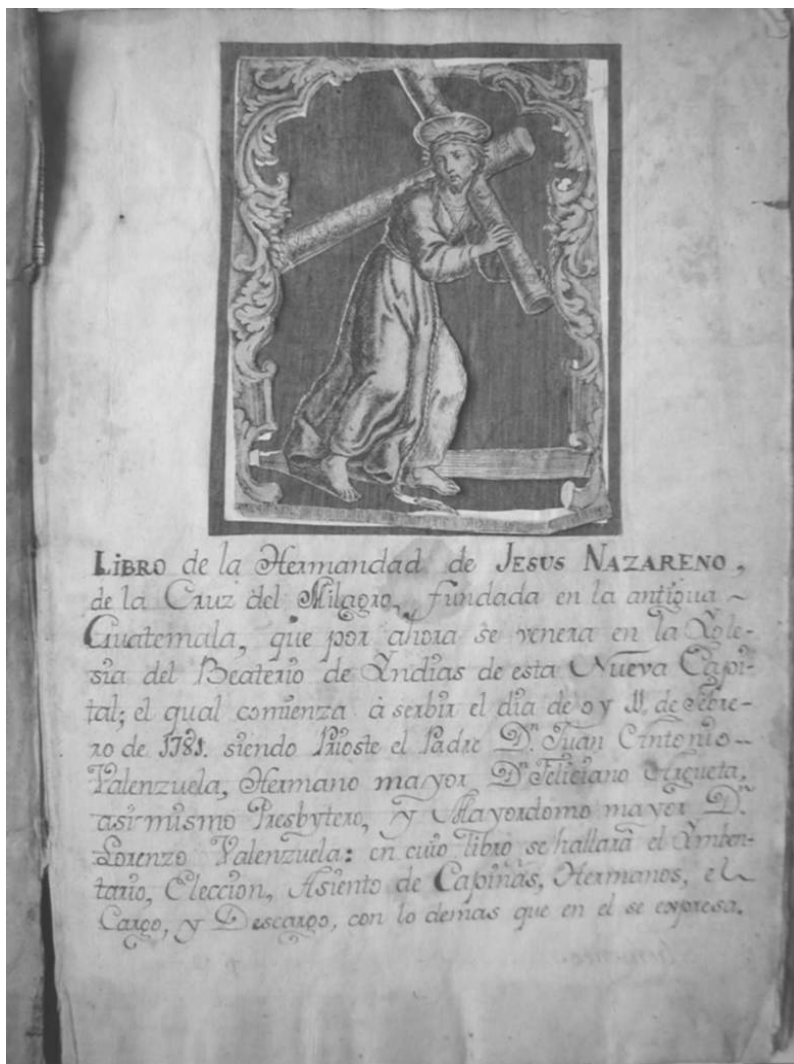 LIBRO de la Hermandad de JESUS NAZARENO,
de la Cruz del Milagro, fundada en la antigua ~
Guatemala, que por ahora se venera en la Ygle-
sia del Beaterio de Yndias de esta Nueva Capi-
tal; el qual comienza à serbir el dia de oy 11. de Febre-
ro de 1781. siendo Prioste el Padre Dn. Juan Antonio
Valenzuela, Hermano mayor Dn. Feliciano Argueta,
asi mismo Presbytero, y Mayordomo mayor Dn.
Lorenzo Valenzuela: en cuio libro se hallarà el Ymben-
tario, Eleccion, Asiento de Capiñas, Hermanos, el
Cargo, y Descargo, con lo demas que en el se expresa.